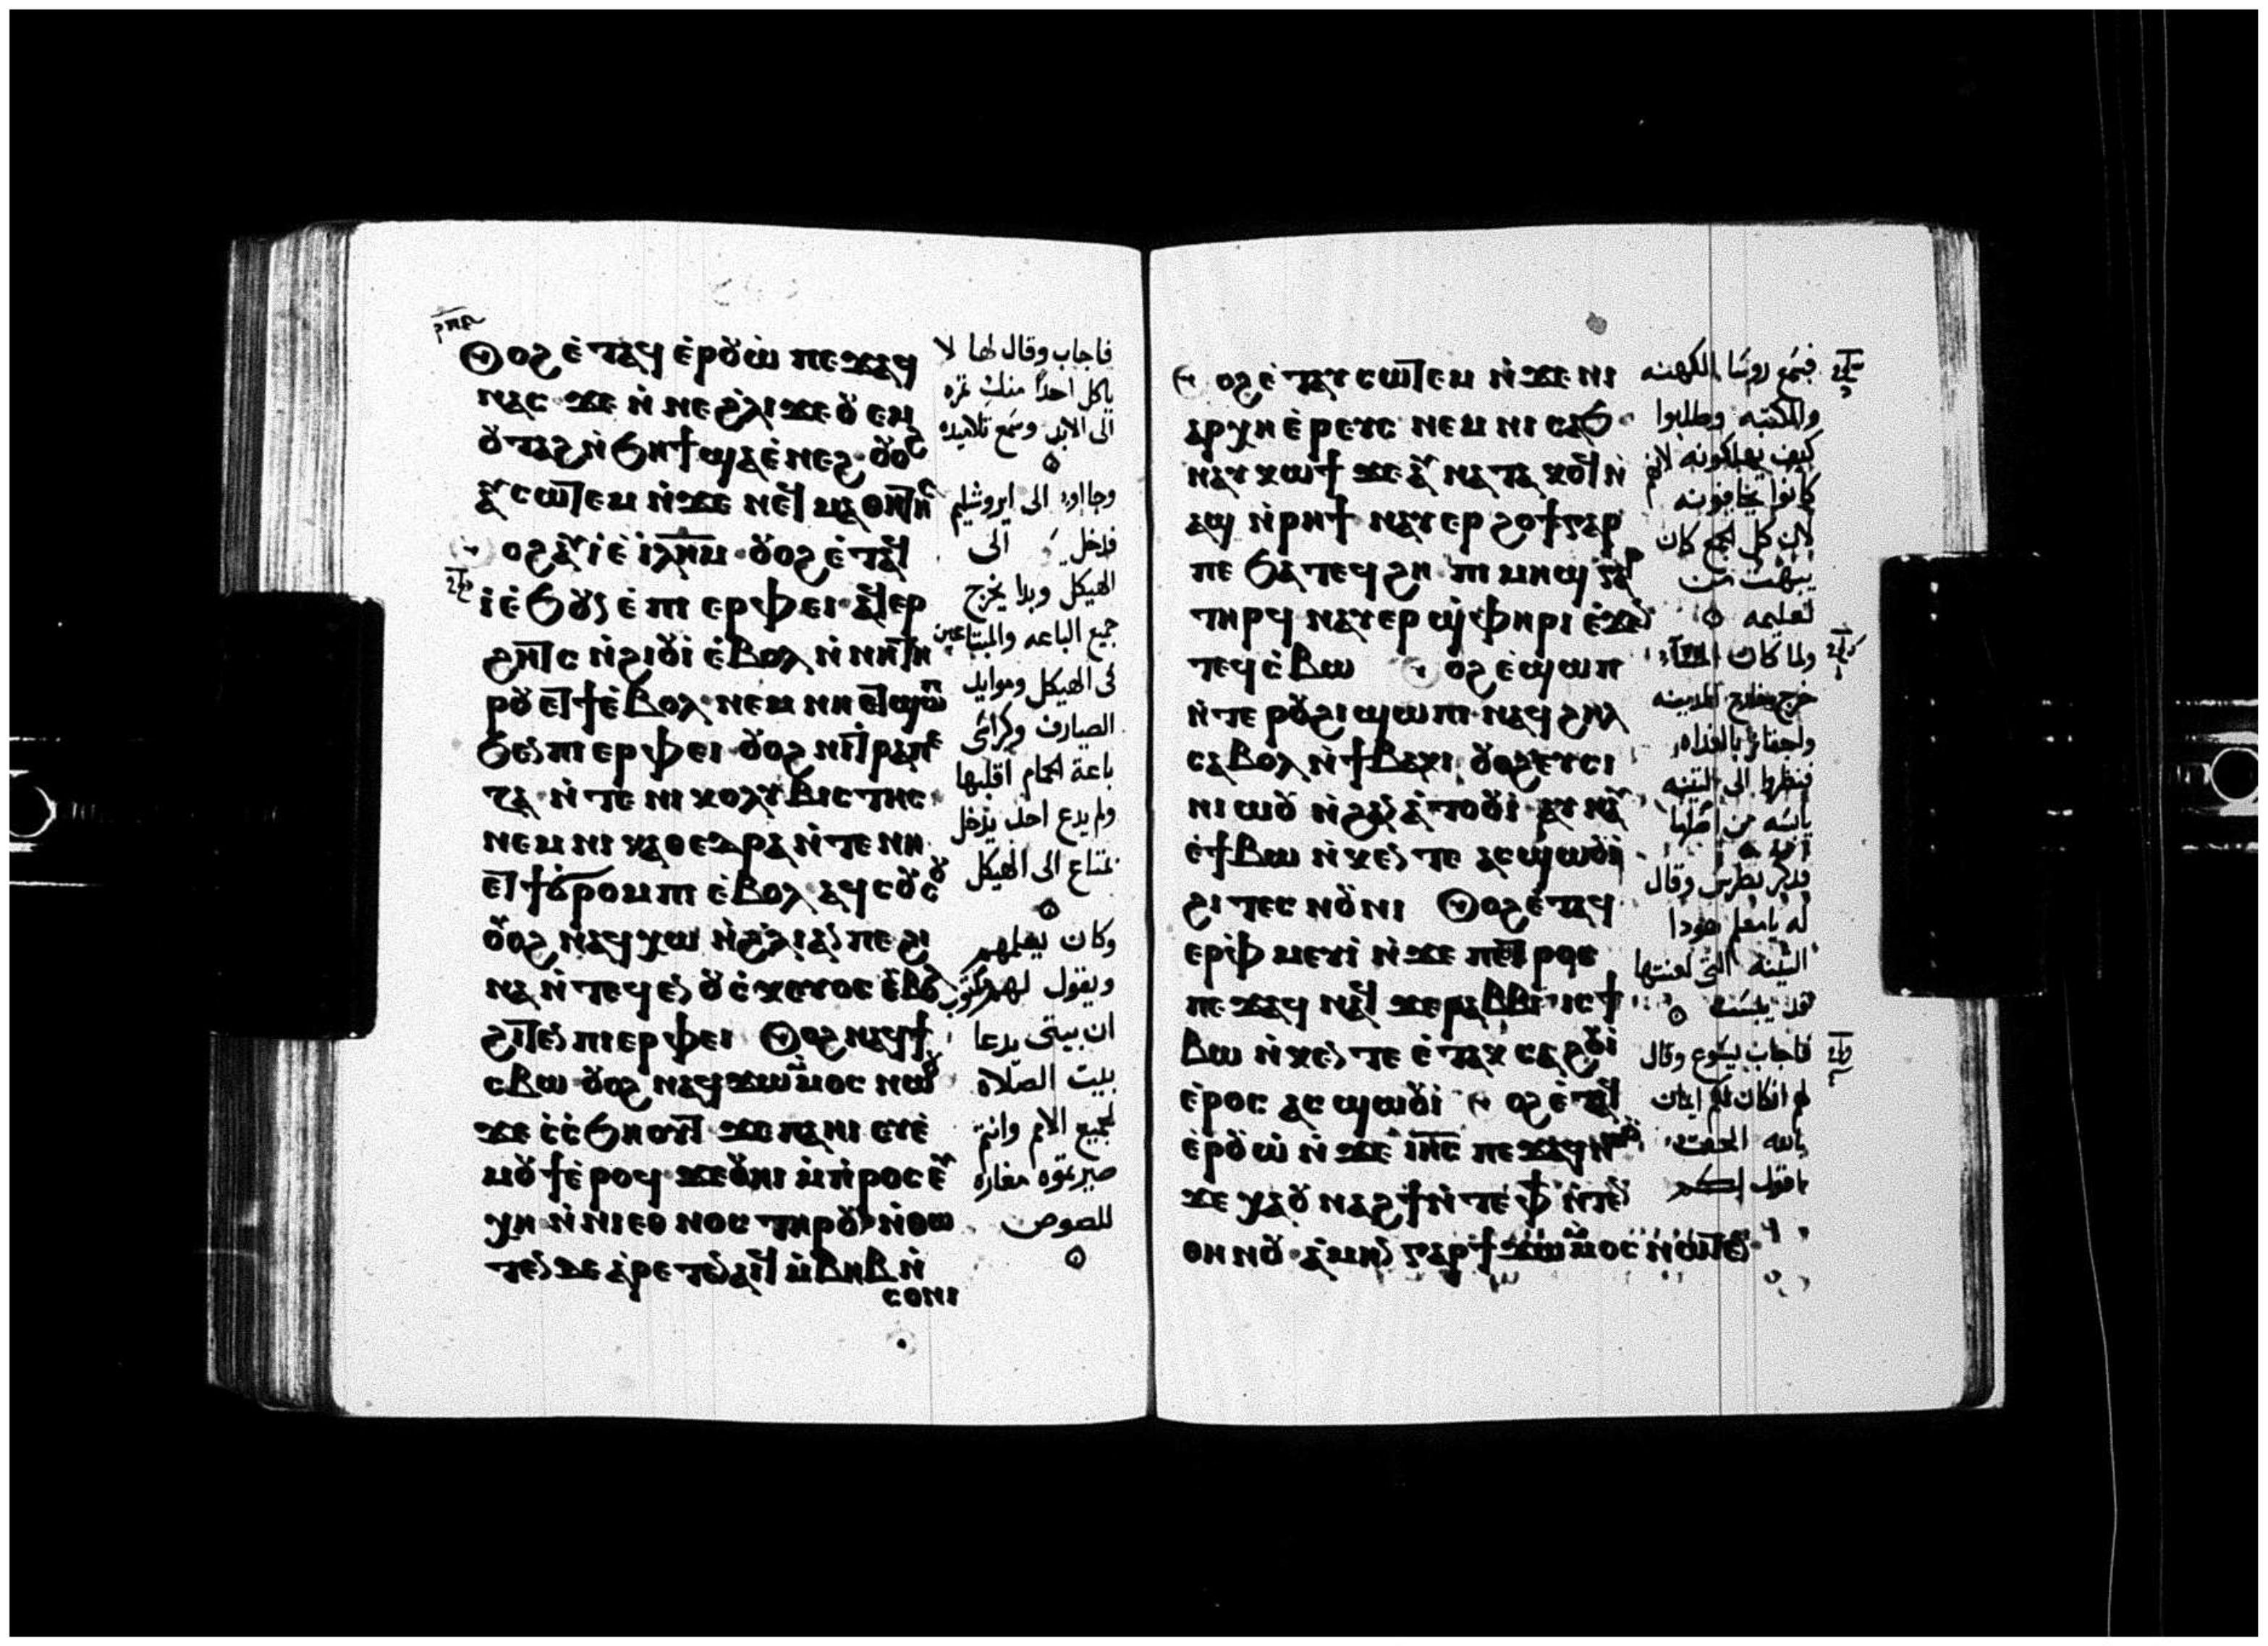 ⲟⲩⲟϩ ⲉ̀ⲧⲁϥ ⲉ̀ⲣⲟⲩⲱ̀ ⲡⲉϫⲁϥ
ⲛⲁⲥ ϫⲉ ⲛ̀ⲛⲉϩⲗⲓ ϫⲉ ⲟⲩⲉⲙ
ⲟⲩⲧⲁϩ ⲛ̀ϧⲏϯ ϣⲁⲉ̀ⲛⲉϩ ⲟⲩⲟϩ
ⲁⲩⲥⲱⲧⲉⲙ ⲛ̀ϫⲉ ⲛⲉϥⲙⲁⲑⲏⲧⲏⲥ
ⲟⲩⲟϩ ⲁⲩⲓ̀ ⲉ̀ⲓⲗⲏⲙ ⲟⲩⲟϩ ⲉ̀ⲧⲁϥ
ⲓ̀ ⲉ̀ϧⲟⲩⲛ ⲉ̀ⲡⲓⲉⲣⲫⲉⲓ ⲁϥⲉⲣ
ϩⲏⲧⲥ ⲛ̀ϩⲓⲟⲩⲓ̀ ⲉ̀ⲃⲟⲗ ⲛ̀ⲛⲏⲧⲏ
ⲣⲟⲩ ⲉⲧϯ ⲉ̀ⲃⲟⲗ ⲛⲉⲙ ⲛⲏ ⲉⲧϣⲱⲡ
ϧⲉⲛ ⲡⲓⲉⲣⲫⲉⲓ ⲟⲩⲟϩ ⲛⲓⲧⲣⲁⲡⲉ
ⲍⲁ ⲛ̀ⲧⲉ ⲛⲓⲕⲟⲗⲩⲃⲓⲥⲧⲏⲥ
ⲛⲉⲙ ⲛⲓⲕⲁⲑⲉⲇⲣⲁ ⲛ̀ⲧⲉ ⲛⲏ
ⲉⲧϯϭⲣⲟⲙⲡⲓ ⲉ̀ⲃⲟⲗ ⲁϥ
ⲟⲩⲟϩ ⲛⲁϥⲭⲱ ⲛ̀ϩⲗⲓ ⲁⲛ ⲡⲉ ϩⲓ
ⲛⲁ ⲛ̀ⲧⲉϥⲉⲛ ⲟⲩⲥ̀ⲕⲉⲩⲟⲥ ⲉ̀ⲃⲟⲗ
ϩⲓⲧⲉⲛ ⲡⲓⲉⲣⲫⲉⲓ ⲟⲩⲟϩ ⲛⲁϥϯ
ⲥⲃⲱ ⲟⲩⲟϩ ⲛⲁϥϫⲱ ⲙ̀ⲙⲟⲥ ⲛⲱⲟⲩ
ϫⲉ ⲥ̀ⲥ̀ϧⲏⲟⲩⲧ ϫⲉ ⲡⲁⲏⲓ ⲉⲩⲉ̀
ⲙⲟⲩϯ ⲉ̀ⲣⲟϥ ϫⲉ ⲟⲩⲏⲓ ⲙ̀ⲡⲣⲟⲥⲉⲩ
ⲭⲏ ⲛ̀ⲛⲓⲉⲑⲛⲟⲥ ⲧⲏⲣⲟⲩ ⲛ̀ⲑⲱ
ⲧⲉⲛ ⲇⲉ ⲁ̀ⲣⲉⲧⲉⲛⲁⲓϥ ⲙ̀ⲃⲏⲃ ⲛ̀
ⲥⲟⲛⲓ
فاجاب وقال لها لا
ياكل احدًا منك ثمره
الى الابد وسمع تلاميذه
وجااوا الى ايروشليم
فدخل الى
الهيكل وبدا يخرج
جميع الباعه والمبتاعين
فى الهيكل وموايد
الصيارف وكراسى
باعة الحمام اقلبها
ولم يدع احد يدخل
بمتاع الى الهيكل
وكان يعلمهم
ويقول لهم مكتوب
ان بيتى يدعا
بيت الصلاه
لجميع الامم وانتم
صيرتموه مغاره
للصوص
ⲟⲩⲟϩ ⲉ̀ⲧⲁⲩⲥⲱⲧⲉⲙ ⲛ̀ϫⲉ ⲛⲓ
ⲁⲣⲭⲏⲉ̀ⲣⲉⲩⲥ ⲛⲉⲙ ⲛⲓⲥⲁϧ
ⲛⲁⲩⲕⲱϯ ϫⲉ ⲁⲩⲛⲁⲧⲁⲕⲟϥ ⲛ̀
ⲁϣ ⲛ̀ⲣⲏϯ ⲛⲁⲩⲉⲣϩⲟϯ ⲅⲁⲣ
ⲡⲉ ϧⲁⲧⲉϥϩⲏ ⲡⲓⲙⲏϣ ⲅⲁⲣ
ⲧⲏⲣϥ ⲛⲁⲩⲉⲣϣ̀ⲫⲏⲣⲓ ⲉ̀ϫⲉⲛ
ⲧⲉϥⲥ̀ⲃⲱ ⲟⲩⲟϩ ⲉ̀ϣⲱⲡ
ⲛ̀ⲧⲉ ⲣⲟⲩϩⲓ ϣⲱⲡⲓ ⲛⲁϥϩⲏⲗ
ⲥⲁⲃⲟⲗ ⲛ̀ϯⲃⲁⲕⲓ ⲟⲩⲟϩ ⲉⲩⲥⲓ
ⲛⲓⲱⲟⲩ ⲛ̀ϩⲁⲛⲁ̀ⲧⲟⲟⲩⲓ̀ ⲁⲩⲛⲁⲩ
ⲉ̀ϯⲃⲱ ⲛ̀ⲕⲉⲛⲧⲉ ⲁⲥϣⲱⲟⲩⲓ̀
ϩⲓ ⲧⲉⲥⲛⲟⲩⲛⲓ ⲟⲩⲟϩ ⲉ̀ⲧⲁϥ
ⲉⲣⲫ̀ⲙⲉⲩⲓ̀ ⲛ̀ϫⲉ ⲡⲉⲧⲣⲟⲥ
ⲡⲉϫⲁϥ ⲛⲁϥ ϫⲉ ⲣⲁⲃⲃⲓ ⲓⲥ ϯ
ⲃⲱ ⲛ̀ⲕⲉⲛⲧⲉ ⲉ̀ⲧⲁⲕⲥⲁϩⲟⲩⲓ̀
ⲉ̀ⲣⲟⲥ ⲁⲥϣⲱⲟⲩⲓ̀ ⲟⲩⲟϩ ⲉ̀ⲧⲁϥ
ⲉ̀ⲣⲟⲩⲱ̀ ⲛ̀ϫⲉ ⲓⲏⲥ ⲡⲉϫⲁϥ ⲛⲱⲟⲩ
ϫⲉ ⲭⲁⲟⲩⲛⲁϩϯ ⲛ̀ⲧⲉ ⲫϯ ⲛ̀ⲧⲉⲛ
ⲑⲏⲛⲟⲩ ⲁ̀ⲙⲏⲛ ⲅⲁⲣ ϯϫⲱ ⲙ̀ⲙⲟⲥ ⲛⲱⲧⲉⲛ
فسمع روسا الكهنه
والكتبه وطلبوا
كيف يهلكونه لانهم
كانوا يخافونه
لان كل الجمع كان
يبهت من
تعليمه
ولما كان المسآء
خرج خارج المدينه
واجتازوا بالغداه
فنظروا الى التينه
يابسه من اصلها
فذكر بطرس وقال
له يا معلم هوذا
التينه التى لعنتها
قد يبست
فاجاب يسوع وقال
لهم ان كان لكم ايمان
بالله الحق
اقول لكم